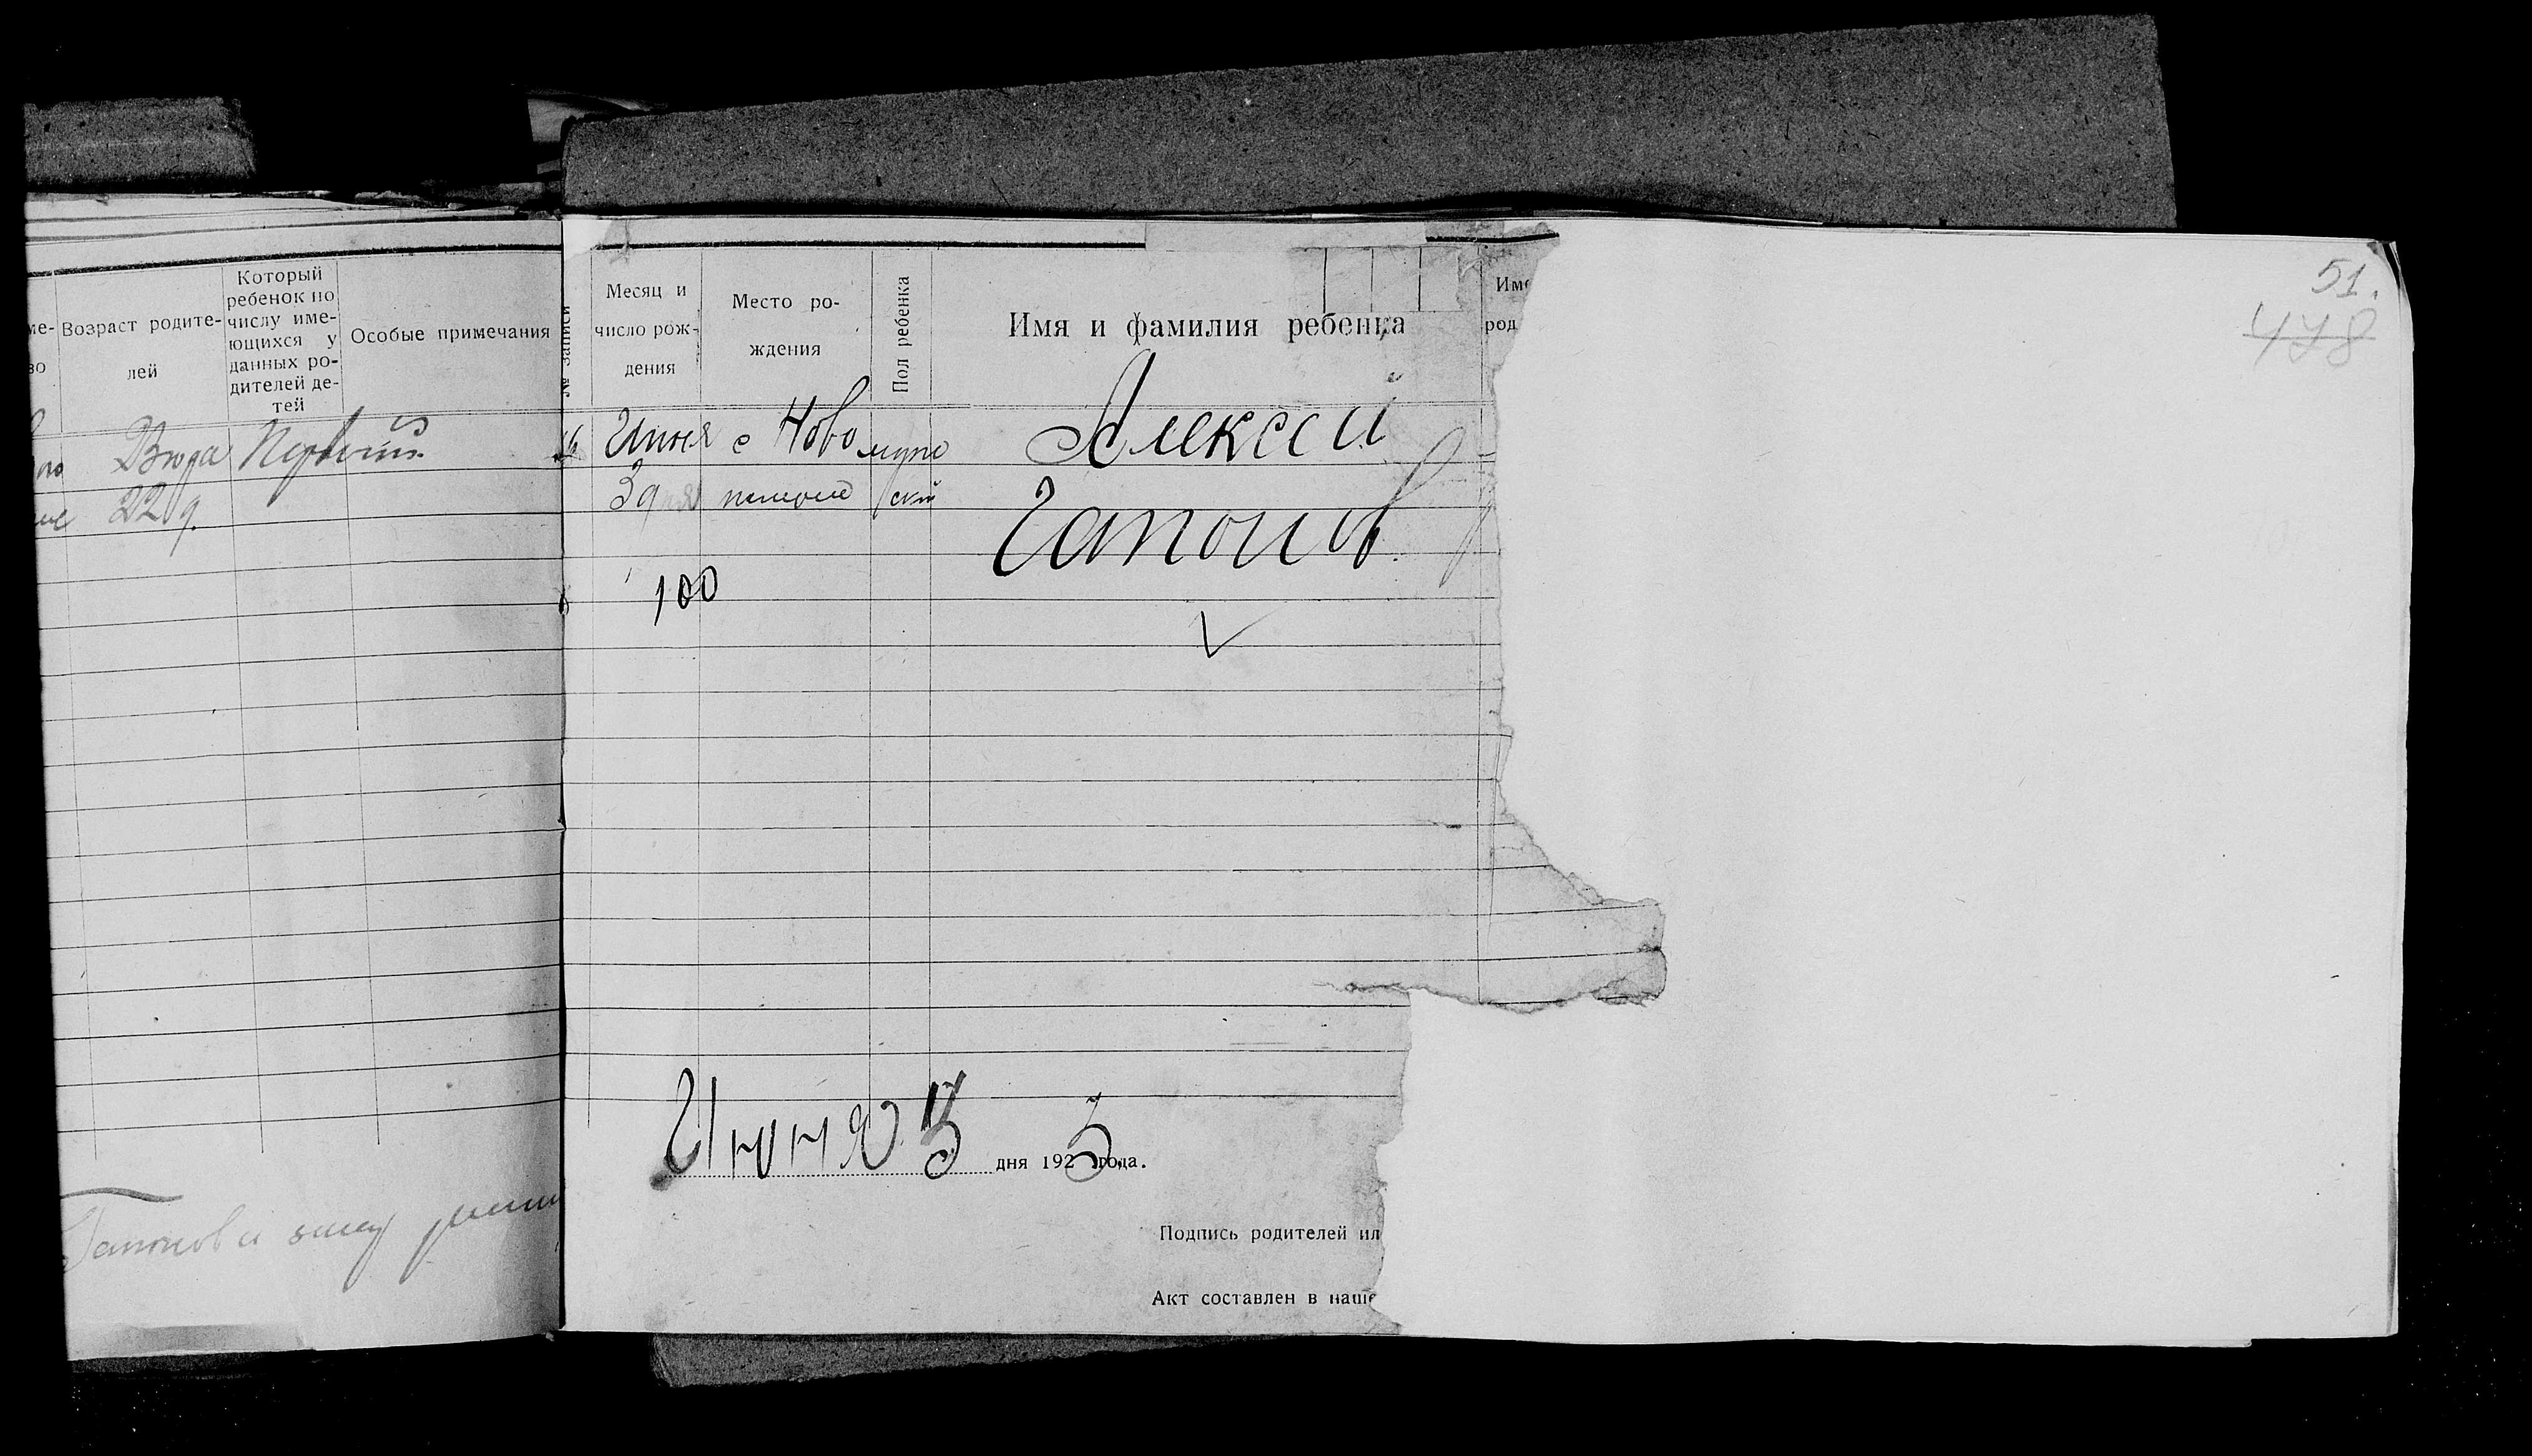 51.
478
Возраст родите-
лей
Который
ребенок по
числу име-
ющихся у
данных ро-
дителей де-
тей
Особые примечания
22 г.
Первый
№ записи
Месяц и
число рож-
дения
Место ро-
ждения
Пол ребенка
Имя и фамилия ребенка
Име
род
Июня
3 д
с Ново
ской
Алексей
Гапонов
100
Июня 3 дня 1925 года.
Подпись родителей ил
Акт составлен в наше
Гапонов